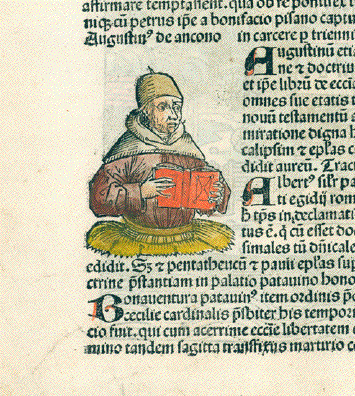 affirmare temptarent. qua ob rē pontifex
niq; cū petrus ip̄e a bonifacio pisano captu
Augustinꝰ de ancono in carcere p trienni
Augustinū eti
ne ⁊ doctrin
et ip̄e librū de ecci
omnes sue etatis
nouū testamentū
miratione digna
calipsim ⁊ ep̄las
didit aureū. Trac
Albertꝰ silr pa
ti egidij rom
declamati
tus c̄. q̄ cū esset doc
simales tū dn̄ical
edidit. Sz ⁊ pentatheucū ⁊ pauli ep̄las sup
ctrine p̄stantiam in palatio patauino hono
Bonauentura patauinꝰ. item ordinis
cecilie cardinalis p̄sbiter his tempori
cio fuit. qui cum acerrime ecclē libertatem
mino tandem sagitta transfixus marturio c